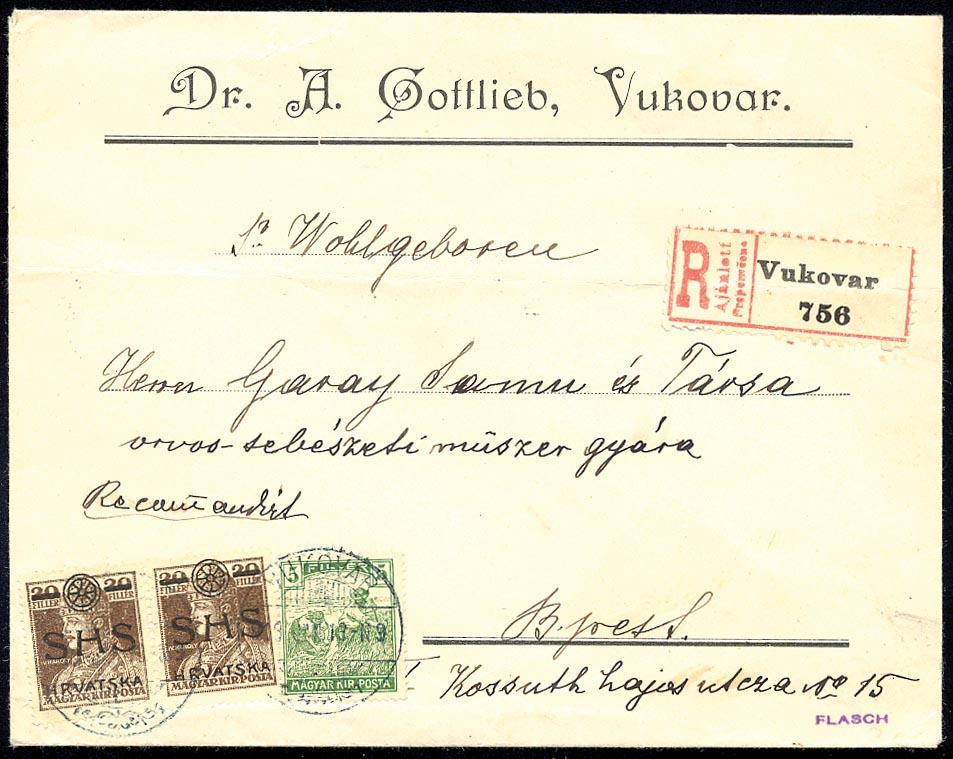 Dr. A. Gottlieb, Vukovar.
Wohlgeboren
R Ajánlott Preporučeno
Vukovar
756
Herrn Garay Samu és Társa
orvos-sebészeti műszer gyára
Recom̄andirt
20 20
FILLÉR FILLÉR
SHS
HRVATSKA
MAGYAR KIR. POSTA
20 20
FILLÉR FILLÉR
SHS
HRVATSKA
MAGYAR KIR. POSTA
VUKOVAR
5 FILLÉR 5
MAGYAR KIR. POSTA
Bpest.
Kossuth Lajos utcza No 15
FLASCH